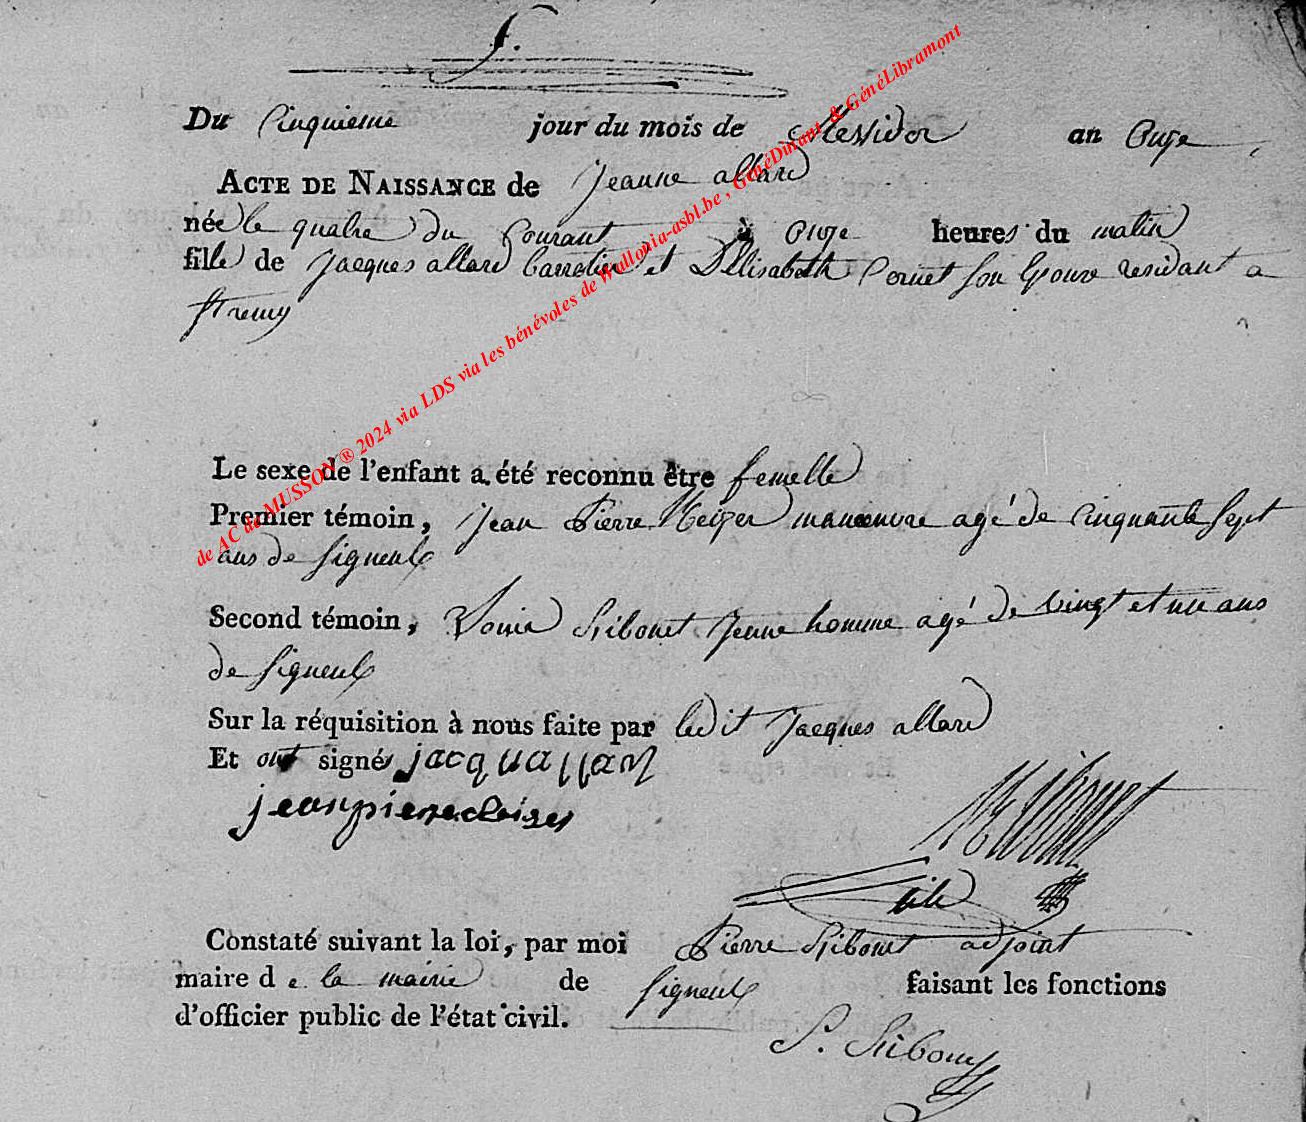 5.
Du Cinquieme jour du mois de Messidor an Onze
ACTE DE NAISSANCE de Jeanne allard
née le quatre du Courant à Onze heures du matin
fille de Jacques allard Carrotier et D'Elisabeth Cornet son Epouse residant a
Stremy
Le sexe de l'enfant a été reconnu être femelle
Premier témoin, Jean Pierre manoeuvre agé de Cinquante Sept
ans de Signeulx
Second témoin, Louis Ribonet Jeune homme agé de vingt et un ans
de Signeulx
Sur la réquisition à nous faite par ledit Jacques allard
Et ont signés jacquallard
jeanpiere
Constaté suivant la loi, par moi Pierre Ribonet adjoint
maire de la mairie de Signeulx faisant les fonctions
d'officier public de l'état civil.
P. Ribonet
de AC de MUSSON ® 2024 via LDS via les bénévoles de Wallonia-asbl.be , GénéDinant & GénéLibramont